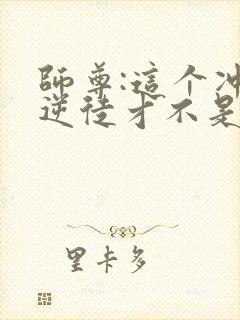 師尊:這个冲
逆徒才不是
里卡多